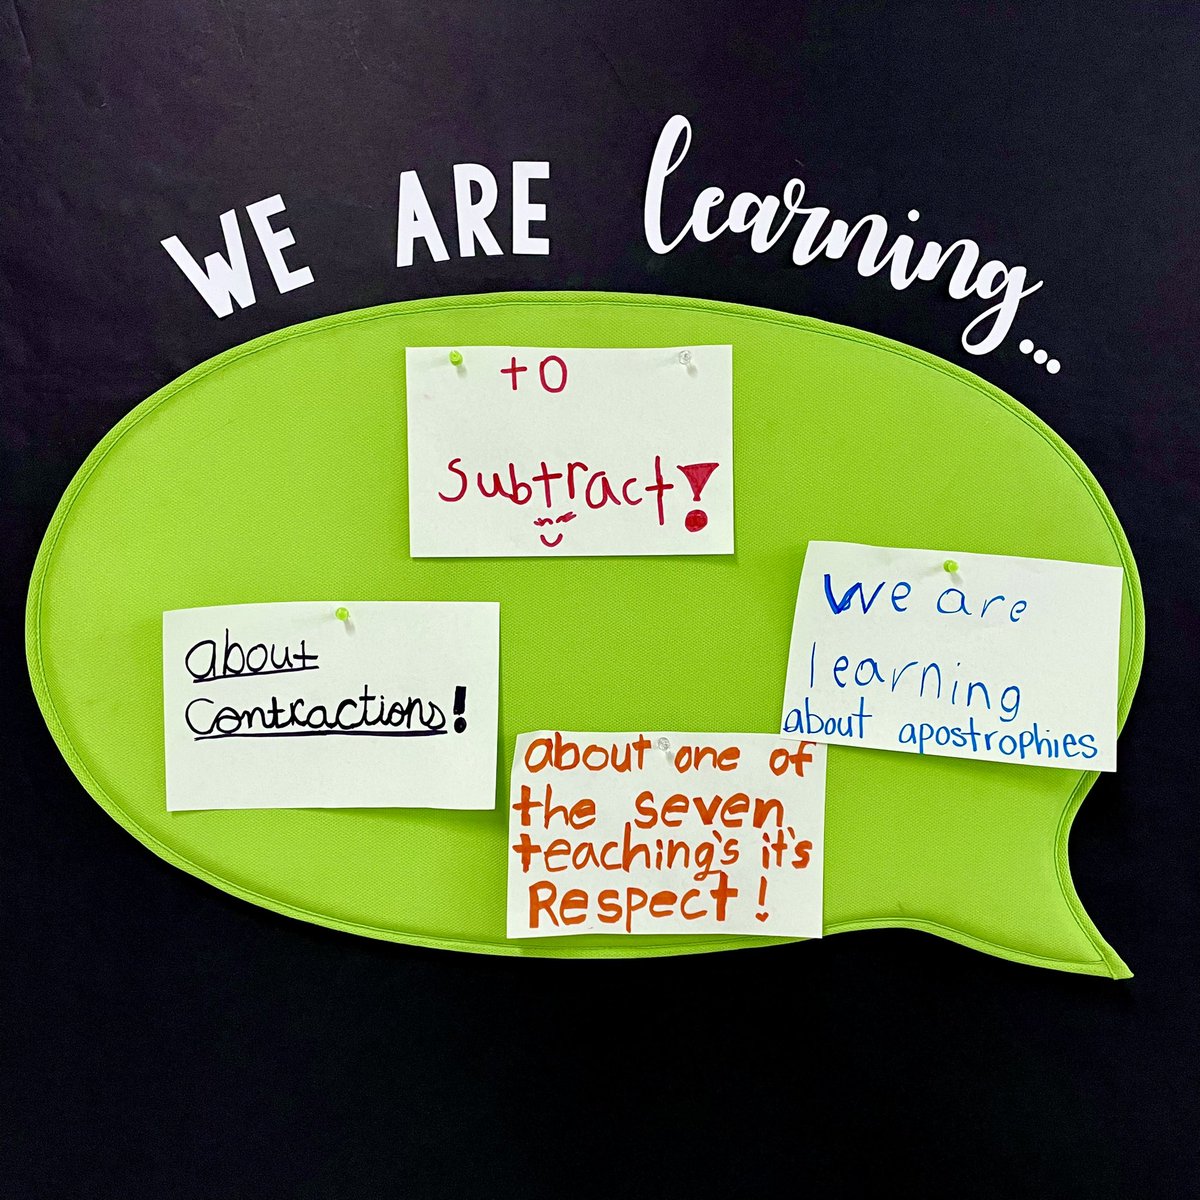 WE ARE learning...
to
subtract!
about
Contractions!
We are
learning
about apostrophies
about one of
the seven
teaching's it's
Respect!